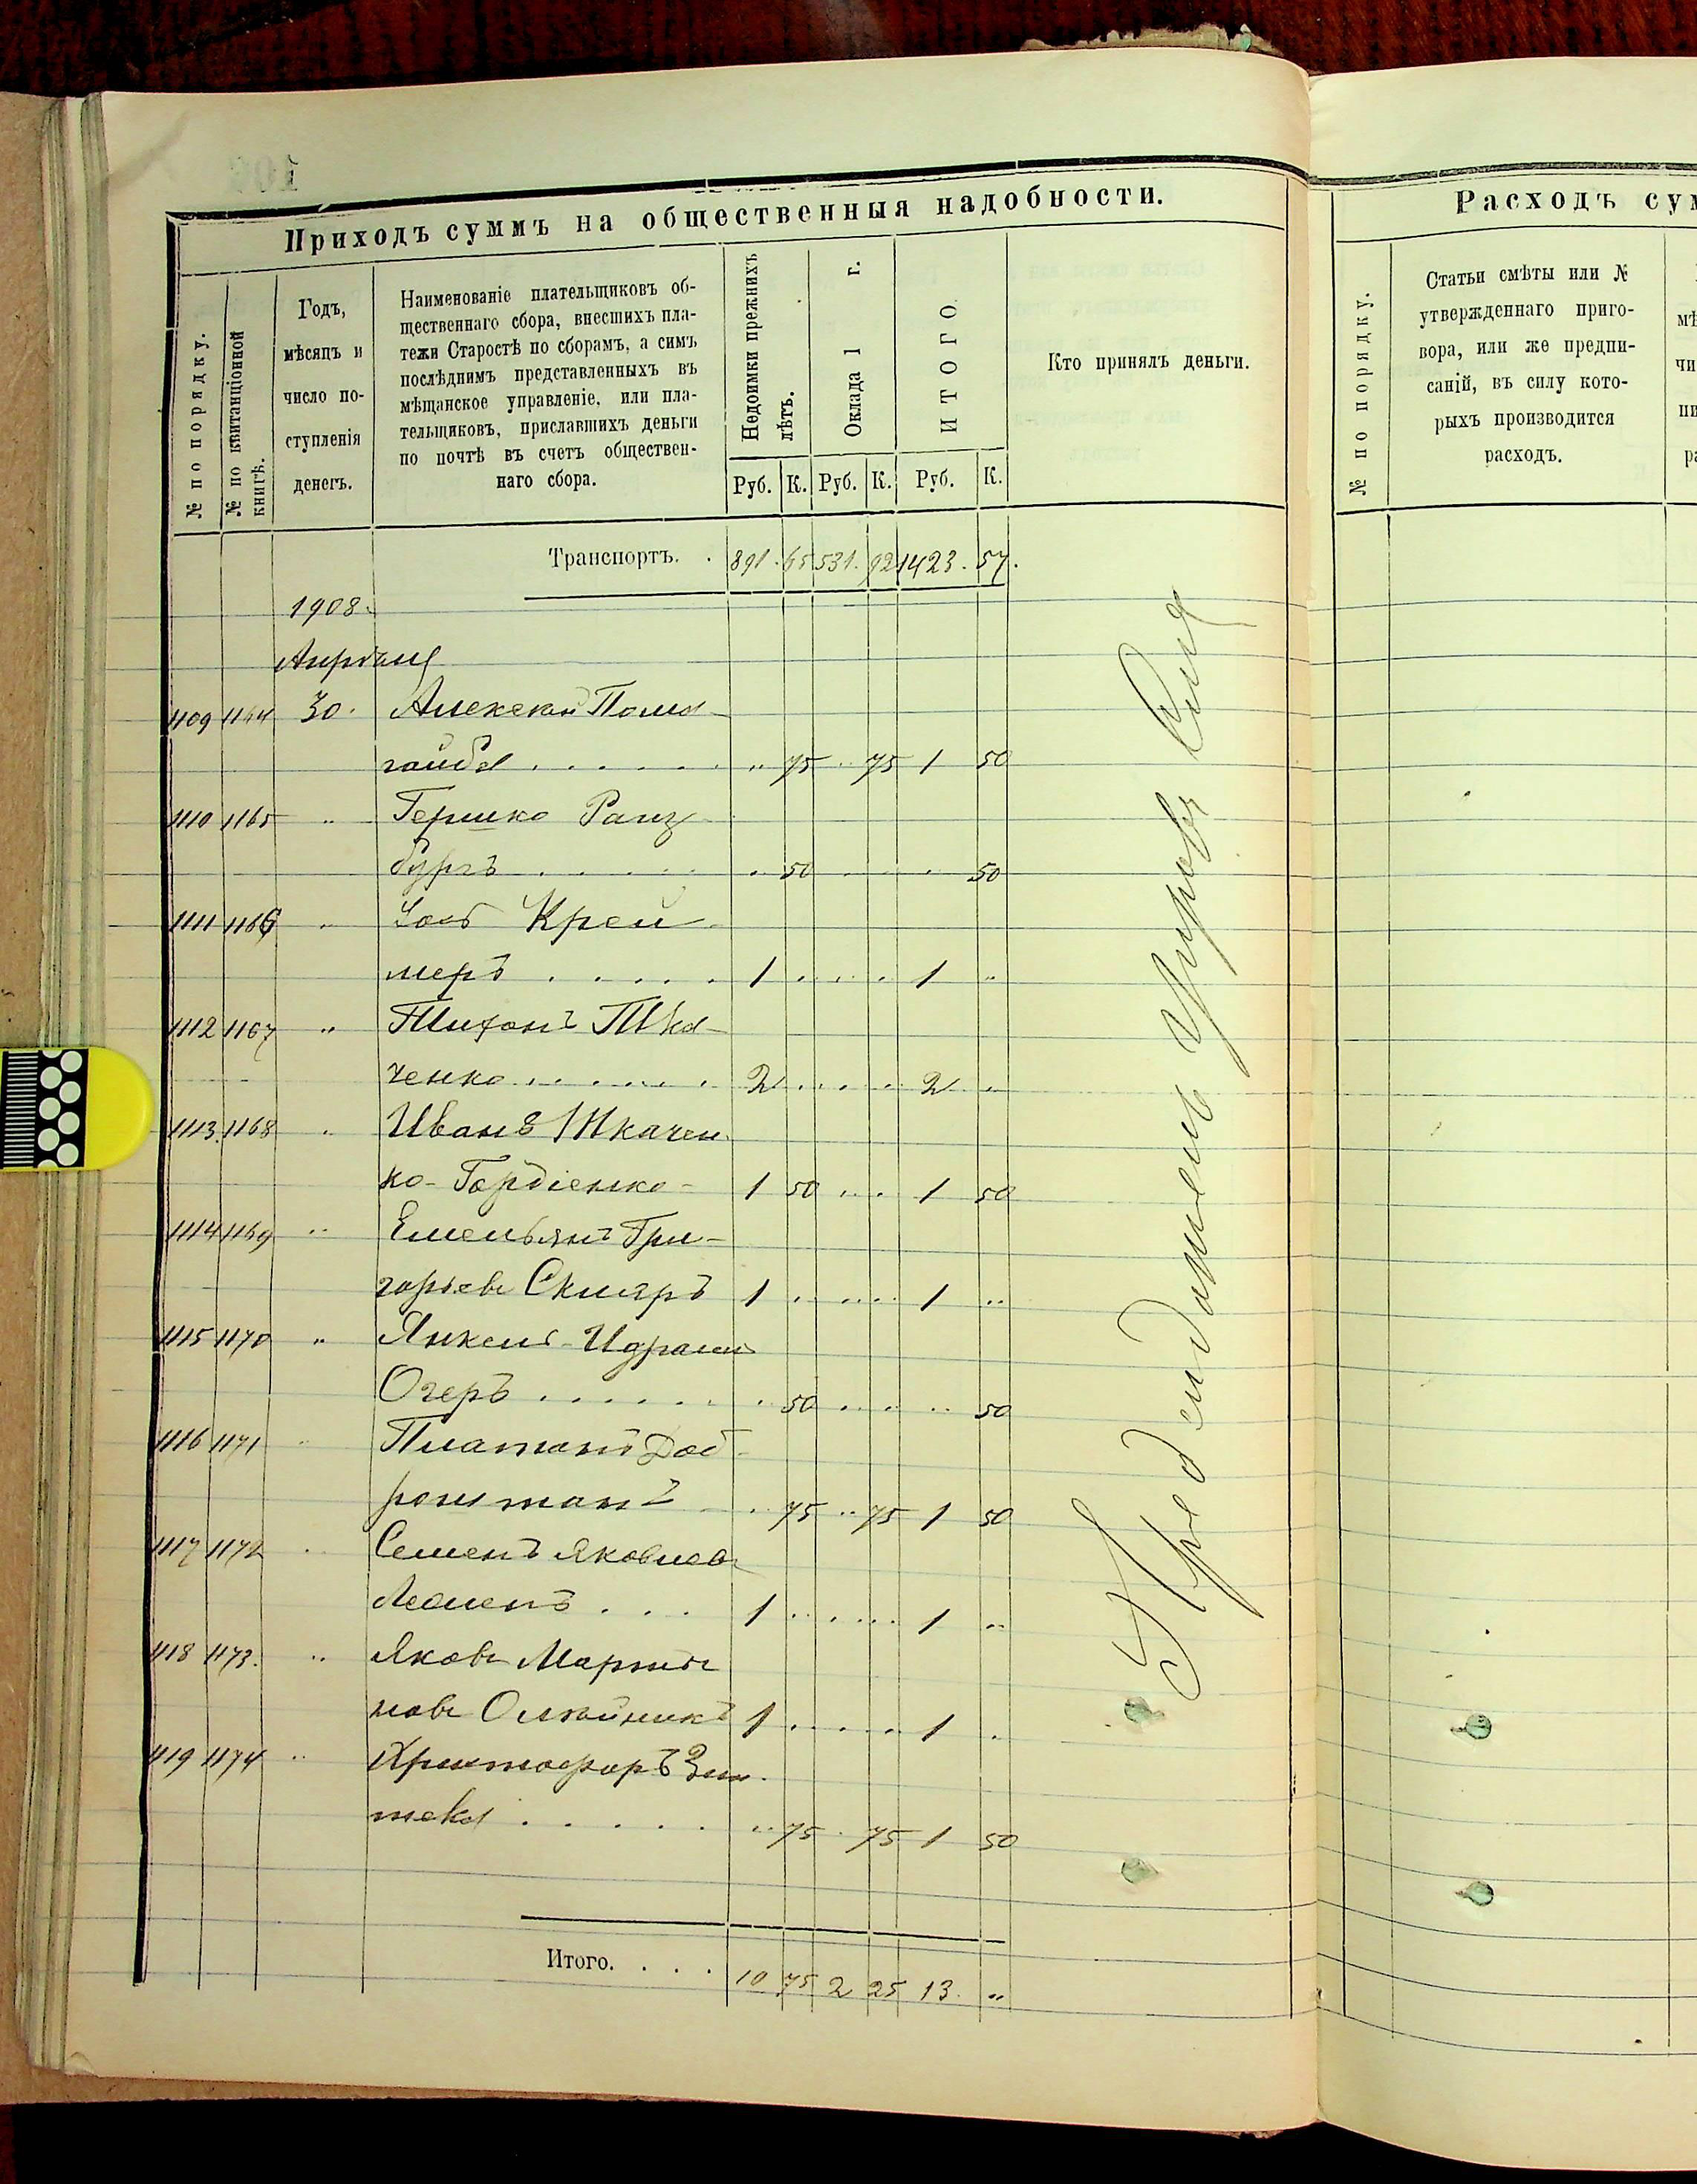 Приходъ суммъ на общественныя надобности.
№ по порядку.
№ по квитанціонной книгѣ.
Годъ,
мѣсяцъ и
число по-
ступленія
денегъ.
Наименованіе плательщиковъ об-
щественнаго сбора, внесшихъ пла-
тежи Старостѣ по сборамъ, а симъ
послѣднимъ представленныхъ въ
мѣщанское управленіе, или пла-
тельщиковъ, приславшихъ деньги
по почтѣ въ счетъ обществен-
наго сбора.
Недоимки прежнихъ
лѣтъ.
Оклада 1 г.
ИТОГО.
Кто принялъ деньги.
Руб. К. Руб. К. Руб. К.
Транспортъ. . 891. 65 531. 92 1423. 57.
1908.
Апрѣль
1109 1164 30. Алексей Пома-
гайба . . . . . . „ 75 „ 75 1 50
1110 1165 „ Гершко Ранз-
бургъ . . . . . „ 50 . . . „ 50
1111 1166 „ Іось Крей-
меръ . . . . . 1 . . . . 1 „
1112 1167 „ Тихонъ Тка-
ченко . . . . . . 2 . . . . 2 „
1113. 1168 „ Иванъ Ткачен-
ко-Гордіенко - 1 50 . . . 1 50
1114 1169 „ Емельянъ Гри-
горьевъ Скляръ 1 . . . . . 1 „
1115 1170 „ Янкель-
Очеръ . . . . . . „ 50 . . . „ 50
1116 1171 „ Платонъ Доб-
„ 75 „ 75 1 50
1117 1172 „ Семенъ Яковлевъ
. . . 1 . . . . . 1 „
1118 1173. „ Яковъ Марты-
новъ Олейникъ 1 . . . . . 1 „
1119 1174 „ Христофоръ
. . . . . „ 75 . 75 1 50
Итого. . . . 10 75 2 25 13. „
Расходъ сум
№ по порядку.
Статьи смѣты или №
утвержденнаго приго-
вора, или же предпи-
саній, въ силу кото-
рыхъ производится
расходъ.
мѣ
чи